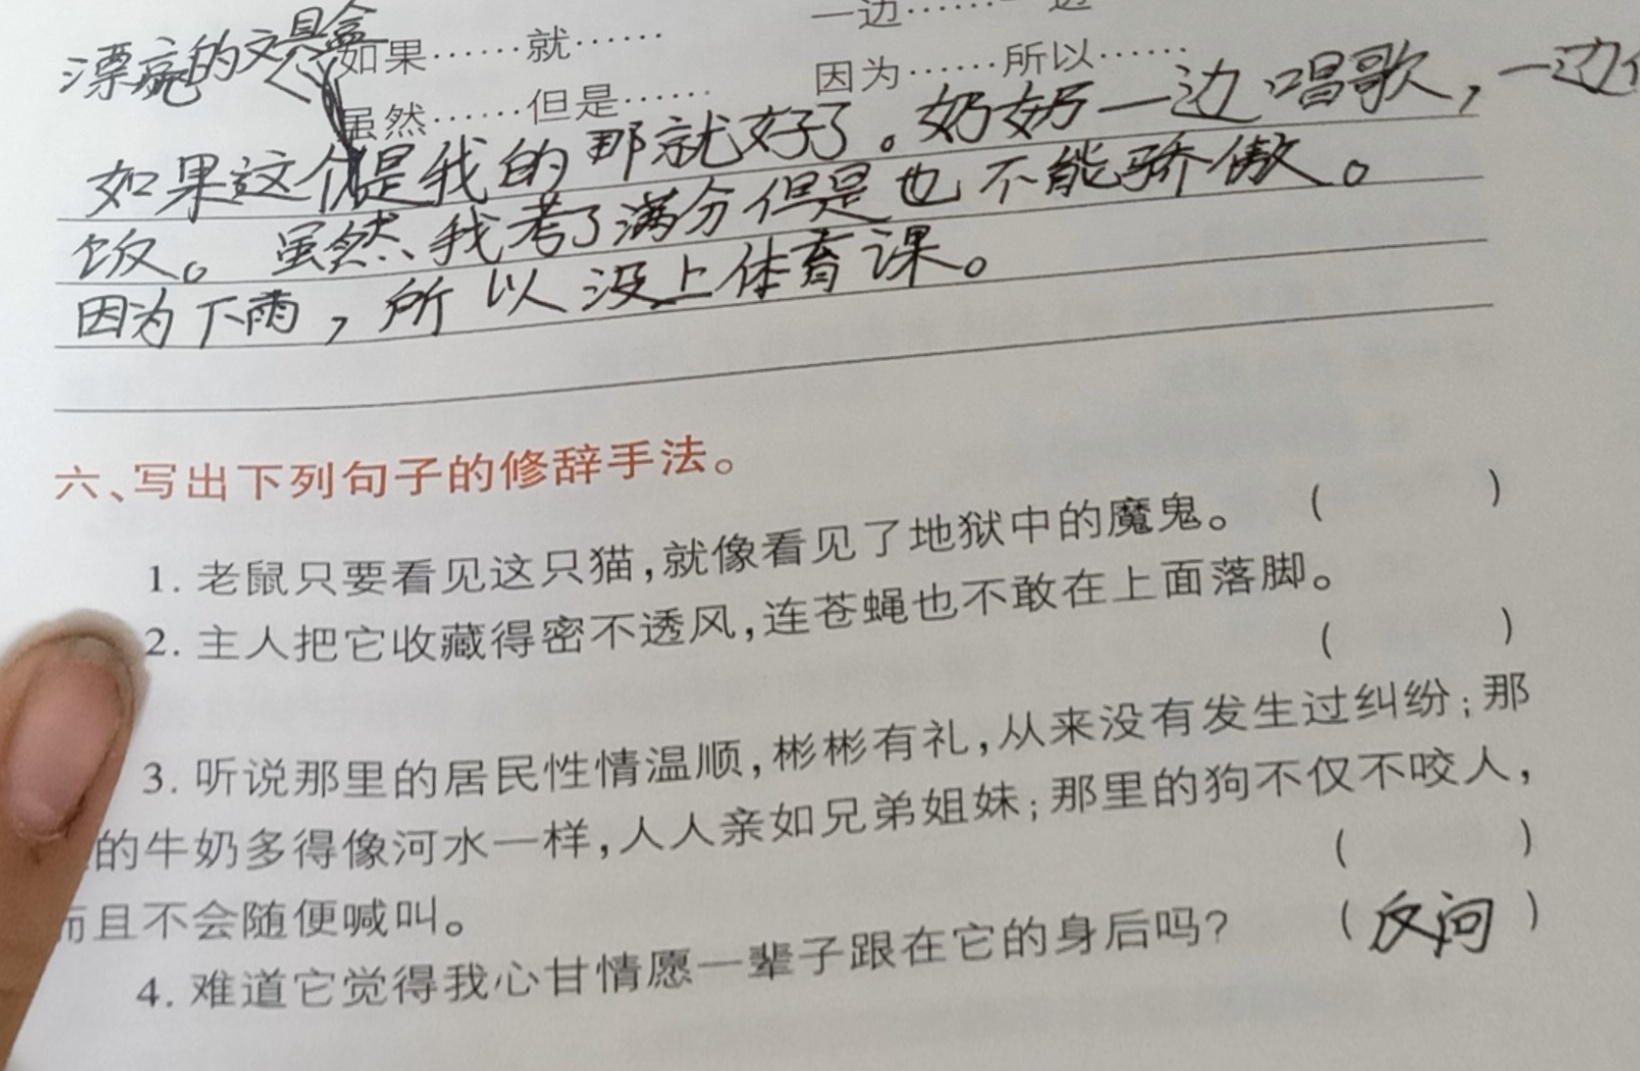 一边……一边
漂亮的文具盒
如果……就……
因为……所以……
虽然……但是……
如果这个是我的那就好了。奶奶一边唱歌，一边
饭。虽然我考了满分但是也不能骄傲。
因为下雨，所以没上体育课。
六、写出下列句子的修辞手法。
1. 老鼠只要看见这只猫，就像看见了地狱中的魔鬼。 （ ）
2. 主人把它收藏得密不透风，连苍蝇也不敢在上面落脚。
（ ）
3. 听说那里的居民性情温顺，彬彬有礼，从来没有发生过纠纷；那
的牛奶多得像河水一样，人人亲如兄弟姐妹；那里的狗不仅不咬人，
而且不会随便喊叫。 （ ）
4. 难道它觉得我心甘情愿一辈子跟在它的身后吗？ （反问）